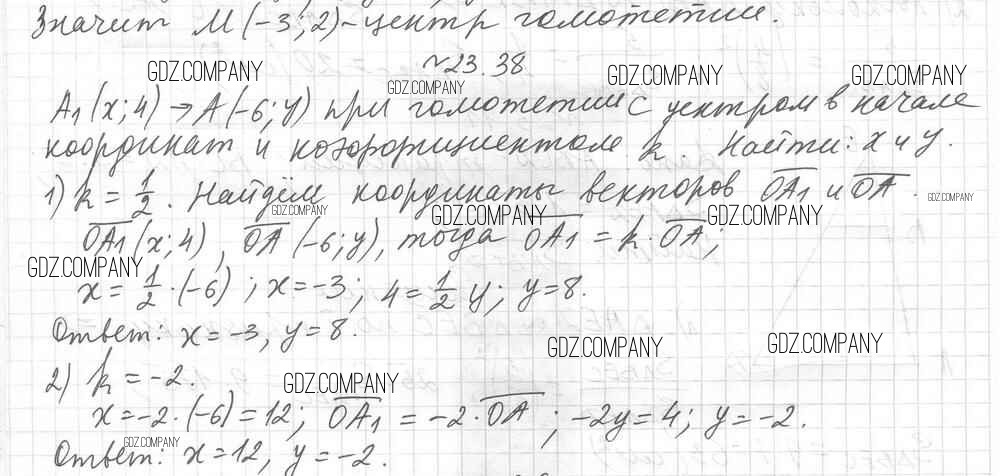 Значит M(-3; 2) - центр гомотетии.
№23.38
GDZ.COMPANY GDZ.COMPANY GDZ.COMPANY GDZ.COMPANY
A₁(x; 4) → A(-6; y) при гомотетии с центром в начале
координат и коэффициентом k. Найти: x и y.
1) k = 1/2. Найдём координаты векторов OA₁ и OA.
GDZ.COMPANY GDZ.COMPANY GDZ.COMPANY GDZ.COMPANY
OA₁(x; 4), OA(-6; y), тогда OA₁ = k · OA;
GDZ.COMPANY
x = 1/2 · (-6); x = -3; 4 = 1/2 y; y = 8.
Ответ: x = -3, y = 8.
GDZ.COMPANY GDZ.COMPANY
2) k = -2.
GDZ.COMPANY
x = -2 · (-6) = 12; OA₁ = -2 · OA; -2y = 4; y = -2.
GDZ.COMPANY
Ответ: x = 12, y = -2.